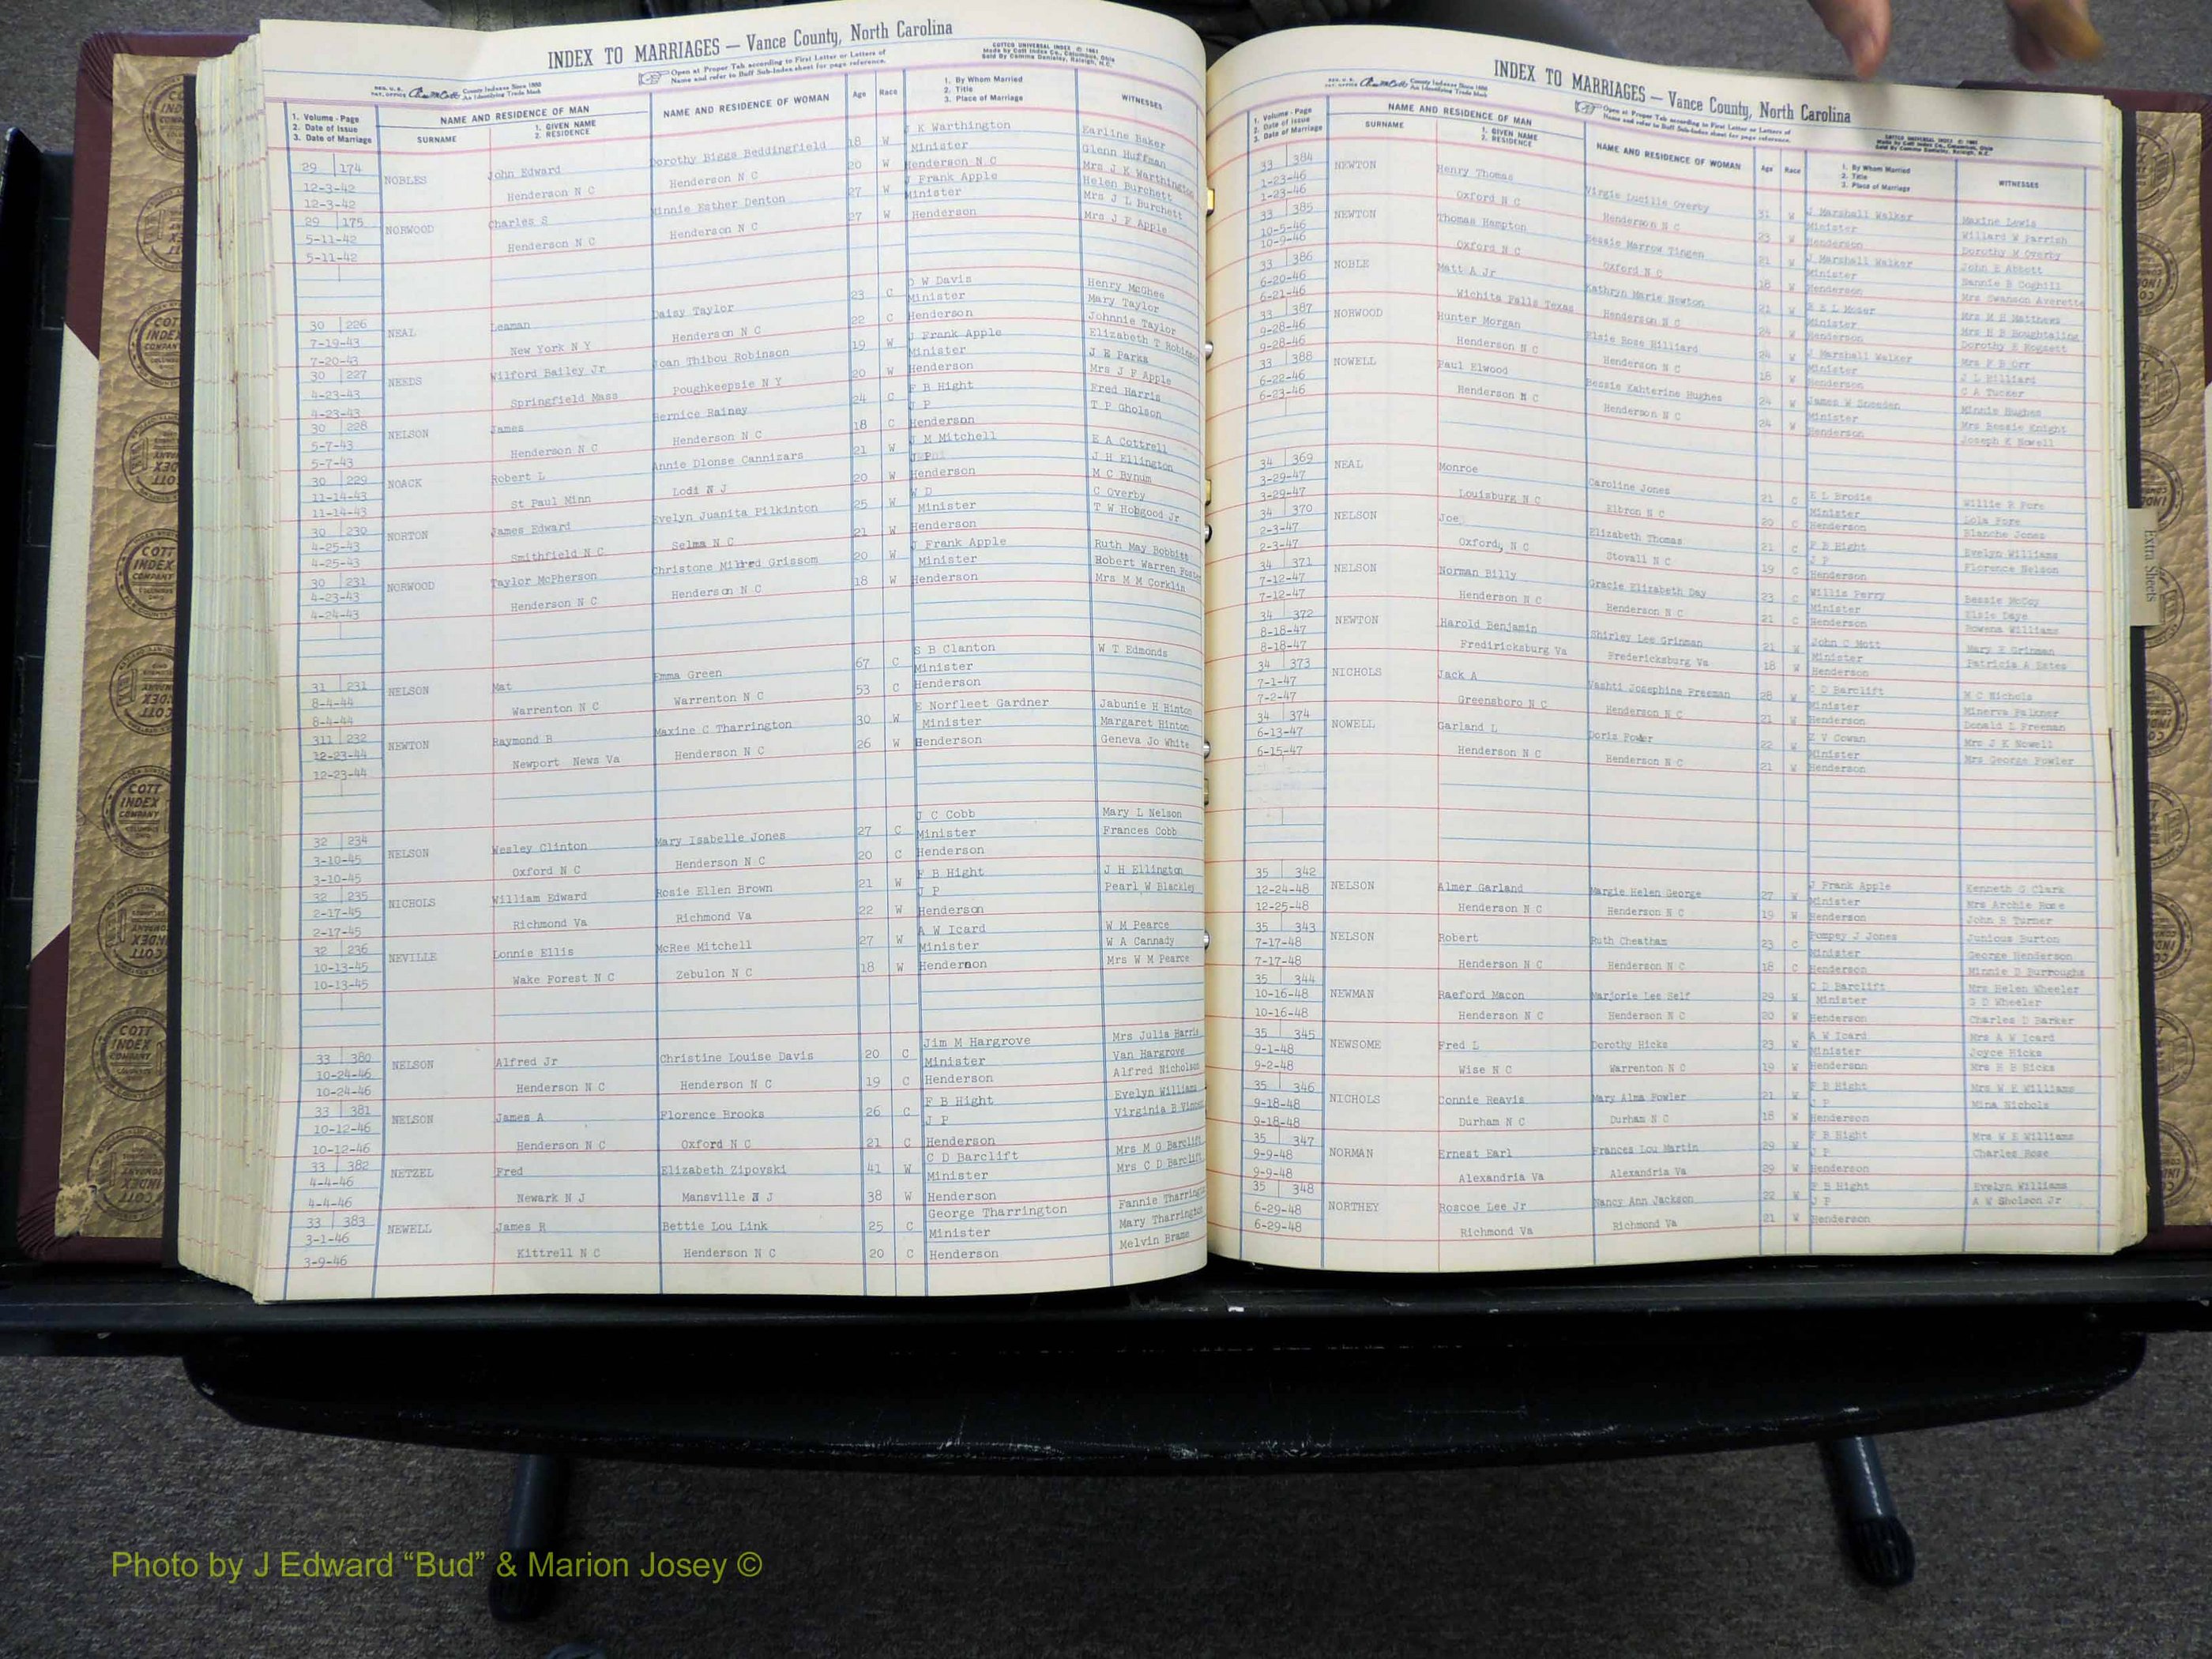 INDEX TO MARRIAGES — Vance County, North Carolina
Open at Proper Tab according to First Letter or Letters of
Name and refer to Buff Sub-Index sheet for page reference.
COTTCO UNIVERSAL INDEX © 1961
1. Volume - Page
2. Date of Issue
3. Date of Marriage
NAME AND RESIDENCE OF MAN
SURNAME
1. GIVEN NAME
2. RESIDENCE
NAME AND RESIDENCE OF WOMAN
Age Race
1. By Whom Married
2. Title
3. Place of Marriage
WITNESSES
29 174 NOBLES John Edward Dorothy Biggs Beddingfield 18 W J K Warthington Earline Baker
12-3-42 Minister Glenn Huffman
12-3-42 Henderson N C Henderson N C 20 W Henderson N C Mrs J K Warthington
29 175 NORWOOD Charles S Minnie Esther Denton 27 W J Frank Apple Helen Burchett
5-11-42 Minister Mrs J L Burchett
5-11-42 Henderson N C Henderson N C 27 W Henderson Mrs J F Apple
30 226 NEAL Leaman Daisy Taylor 23 C D W Davis Henry McGhee
7-19-43 Minister Mary Taylor
7-20-43 New York N Y Henderson N C 22 C Henderson Johnnie Taylor
30 227 NEEDS Wilford Bailey Jr Joan Thibou Robinson 19 W J Frank Apple Elizabeth T Robinson
4-23-43 Minister J E Parks
4-23-43 Springfield Mass Poughkeepsie N Y 20 W Henderson Mrs J F Apple
30 228 NELSON James Bernice Rainey 24 C F B Hight Fred Harris
5-7-43 J P T P Gholson
5-7-43 Henderson N C Henderson N C 18 C Henderson
30 229 NOACK Robert L Annie Dlonse Cannizars 21 W J M Mitchell E A Cottrell
11-14-43 J P J H Ellington
11-14-43 St Paul Minn Lodi N J 20 W Henderson M C Bynum
30 230 NORTON James Edward Evelyn Juanita Pilkinton 25 W W D C Overby
4-25-43 Minister T W Hobgood Jr
4-25-43 Smithfield N C Selma N C 21 W Henderson
30 231 NORWOOD Taylor McPherson Christone Milfred Grissom 20 W J Frank Apple Ruth May Bobbitt
4-23-43 Minister Robert Warren
4-24-43 Henderson N C Henderson N C 18 W Henderson Mrs M M Corklin
31 231 NELSON Mat Emma Green 67 C S B Clanton W T Edmonds
8-4-44 Minister
8-4-44 Warrenton N C Warrenton N C 53 C Henderson
311 232 NEWTON Raymond B Maxine C Tharrington 30 W E Norfleet Gardner Jabunie H Hinton
12-23-44 Minister Margaret Hinton
12-23-44 Newport News Va Henderson N C 26 W Henderson Geneva Jo White
32 234 NELSON Wesley Clinton Mary Isabelle Jones 27 C J C Cobb Mary L Nelson
3-10-45 Minister Frances Cobb
3-10-45 Oxford N C Henderson N C 20 C Henderson
32 235 NICHOLS William Edward Rosie Ellen Brown 21 W F B Hight J H Ellington
2-17-45 J P Pearl W Blackley
2-17-45 Richmond Va Richmond Va 22 W Henderson
32 236 NEVILLE Lonnie Ellis McRee Mitchell 27 W A W Icard W M Pearce
10-13-45 Minister W A Cannady
10-13-45 Wake Forest N C Zebulon N C 18 W Henderson Mrs W M Pearce
33 380 NELSON Alfred Jr Christine Louise Davis 20 C Jim M Hargrove Mrs Julia Harris
10-24-46 Minister Van Hargrove
10-24-46 Henderson N C Henderson N C 19 C Henderson Alfred Nicholson
33 381 NELSON James A Florence Brooks 26 C F B Hight Evelyn Williams
10-12-46 J P Virginia B
10-12-46 Henderson N C Oxford N C 21 C Henderson
33 382 NETZEL Fred Elizabeth Zipovski 41 W C D Barclift Mrs M G Barclift
4-4-46 Minister Mrs C D Barclift
4-4-46 Newark N J Mansville N J 38 W Henderson
33 383 NEWELL James R Bettie Lou Link 25 C George Tharrington Fannie Tharrington
3-1-46 Minister Mary Tharrington
3-9-46 Kittrell N C Henderson N C 20 C Henderson Melvin Brame
INDEX TO MARRIAGES — Vance County, North Carolina
Open at Proper Tab according to First Letter or Letters of
Name and refer to Buff Sub-Index sheet for page reference.
1. Volume - Page
2. Date of Issue
3. Date of Marriage
NAME AND RESIDENCE OF MAN
SURNAME
1. GIVEN NAME
2. RESIDENCE
NAME AND RESIDENCE OF WOMAN
Age Race
1. By Whom Married
2. Title
3. Place of Marriage
WITNESSES
33 384 NEWTON Henry Thomas Virgie Lucille Overby 31 W J Marshall Walker Maxine Lewis
1-23-46 Minister Willard W Parrish
1-23-46 Oxford N C Henderson N C 23 W Henderson Dorothy M Overby
33 385 NEWTON Thomas Hampton Bessie Morrow Tingen 21 W J Marshall Walker John B Abbott
10-5-46 Minister Nannie B Coghill
10-9-46 Oxford N C Oxford N C 18 W Henderson Mrs Swanson Averette
33 386 NOBLE Matt A Jr Kathryn Marie Newton 21 W B E L Moser Mrs M E Matthews
6-20-46 Minister Mrs H B Houghtaling
6-21-46 Wichita Falls Texas Henderson N C 24 W Henderson Dorothy E Hogsett
33 387 NORWOOD Hunter Morgan Elsie Rose Hilliard 24 W J Marshall Walker Mrs P B Orr
9-28-46 Minister J L Hilliard
9-28-46 Henderson N C Henderson N C 18 W Henderson C A Tucker
33 388 NOWELL Paul Elwood Bessie Kahterine Hughes 24 W James W Sneeden Minnie Hughes
6-22-46 Minister Mrs Bessie Knight
6-23-46 Henderson N C Henderson N C 24 W Henderson Joseph K Nowell
34 369 NEAL Monroe Caroline Jones 21 C E L Brodie Willie R Fore
3-29-47 Minister Lola Fore
3-29-47 Louisburg N C Elbron N C 20 C Henderson Blanche Jones
34 370 NELSON Joe Elizabeth Thomas 21 C F B Hight Evelyn Williams
2-3-47 J P Florence Nelson
2-3-47 Oxford, N C Stovall N C 19 C Henderson
34 371 NELSON Norman Billy Gracie Elizabeth Day 23 C Willis Perry Bessie McCoy
7-12-47 Minister Elsie Daye
7-12-47 Henderson N C Henderson N C 21 C Henderson Rowena Williams
34 372 NEWTON Harold Benjamin Shirley Lee Grinman 21 W John C Mott Mary E Grinman
8-18-47 Minister Patricia A Estes
8-18-47 Frediricksburg Va Fredericksburg Va 18 W Henderson
34 373 NICHOLS Jack A Vashti Josephine Freeman 28 W C D Barclift M C Nichols
7-1-47 Minister Minerva Falkner
7-2-47 Greensboro N C Henderson N C 21 W Henderson Donald L Freeman
34 374 NOWELL Garland L Doris 22 W Z V Cowan Mrs J K Nowell
6-13-47 Minister Mrs George Fowler
6-15-47 Henderson N C Henderson N C 21 W Henderson
35 342 NELSON Almer Garland Margie Helen George 27 W J Frank Apple Kenneth G Clark
12-24-48 Minister Mrs Archie Rose
12-25-48 Henderson N C Henderson N C 19 W Henderson John S Turner
35 343 NELSON Robert Ruth Cheatham 23 C Pompey J Jones Junious Burton
7-17-48 Minister George Henderson
7-17-48 Henderson N C Henderson N C 18 C Henderson Minnie D Burroughs
35 344 NEWMAN Raeford Macon Marjorie Lee Self 29 W C D Barclift Mrs Helen Wheeler
10-16-48 Minister G D Wheeler
10-16-48 Henderson N C Henderson N C 20 W Henderson Charles D Barker
35 345 NEWSOME Fred L Dorothy Hicks 23 W A W Icard Mrs A W Icard
9-1-48 Minister Joyce Hicks
9-2-48 Wise N C Warrenton N C 19 W Henderson Mrs H B Hicks
35 346 NICHOLS Connie Reavis Mary Alma Fowler 21 W F B Hight Mrs W E Williams
9-18-48 J P Mina Nichols
9-18-48 Durham N C Durham N C 18 W Henderson
35 347 NORMAN Ernest Earl Frances Lou Martin 29 W F B Hight Mrs W E Williams
9-9-48 J P Charles Rose
9-9-48 Alexandria Va Alexandria Va 29 W Henderson
35 348 NORTHEY Roscoe Lee Jr Nancy Ann Jackson 22 W F B Hight Evelyn Williams
6-29-48 J P A W Sholson Jr
6-29-48 Richmond Va Richmond Va 21 W Henderson
Extra Sheets
COTT INDEX COMPANY
Photo by J Edward “Bud” & Marion Josey ©